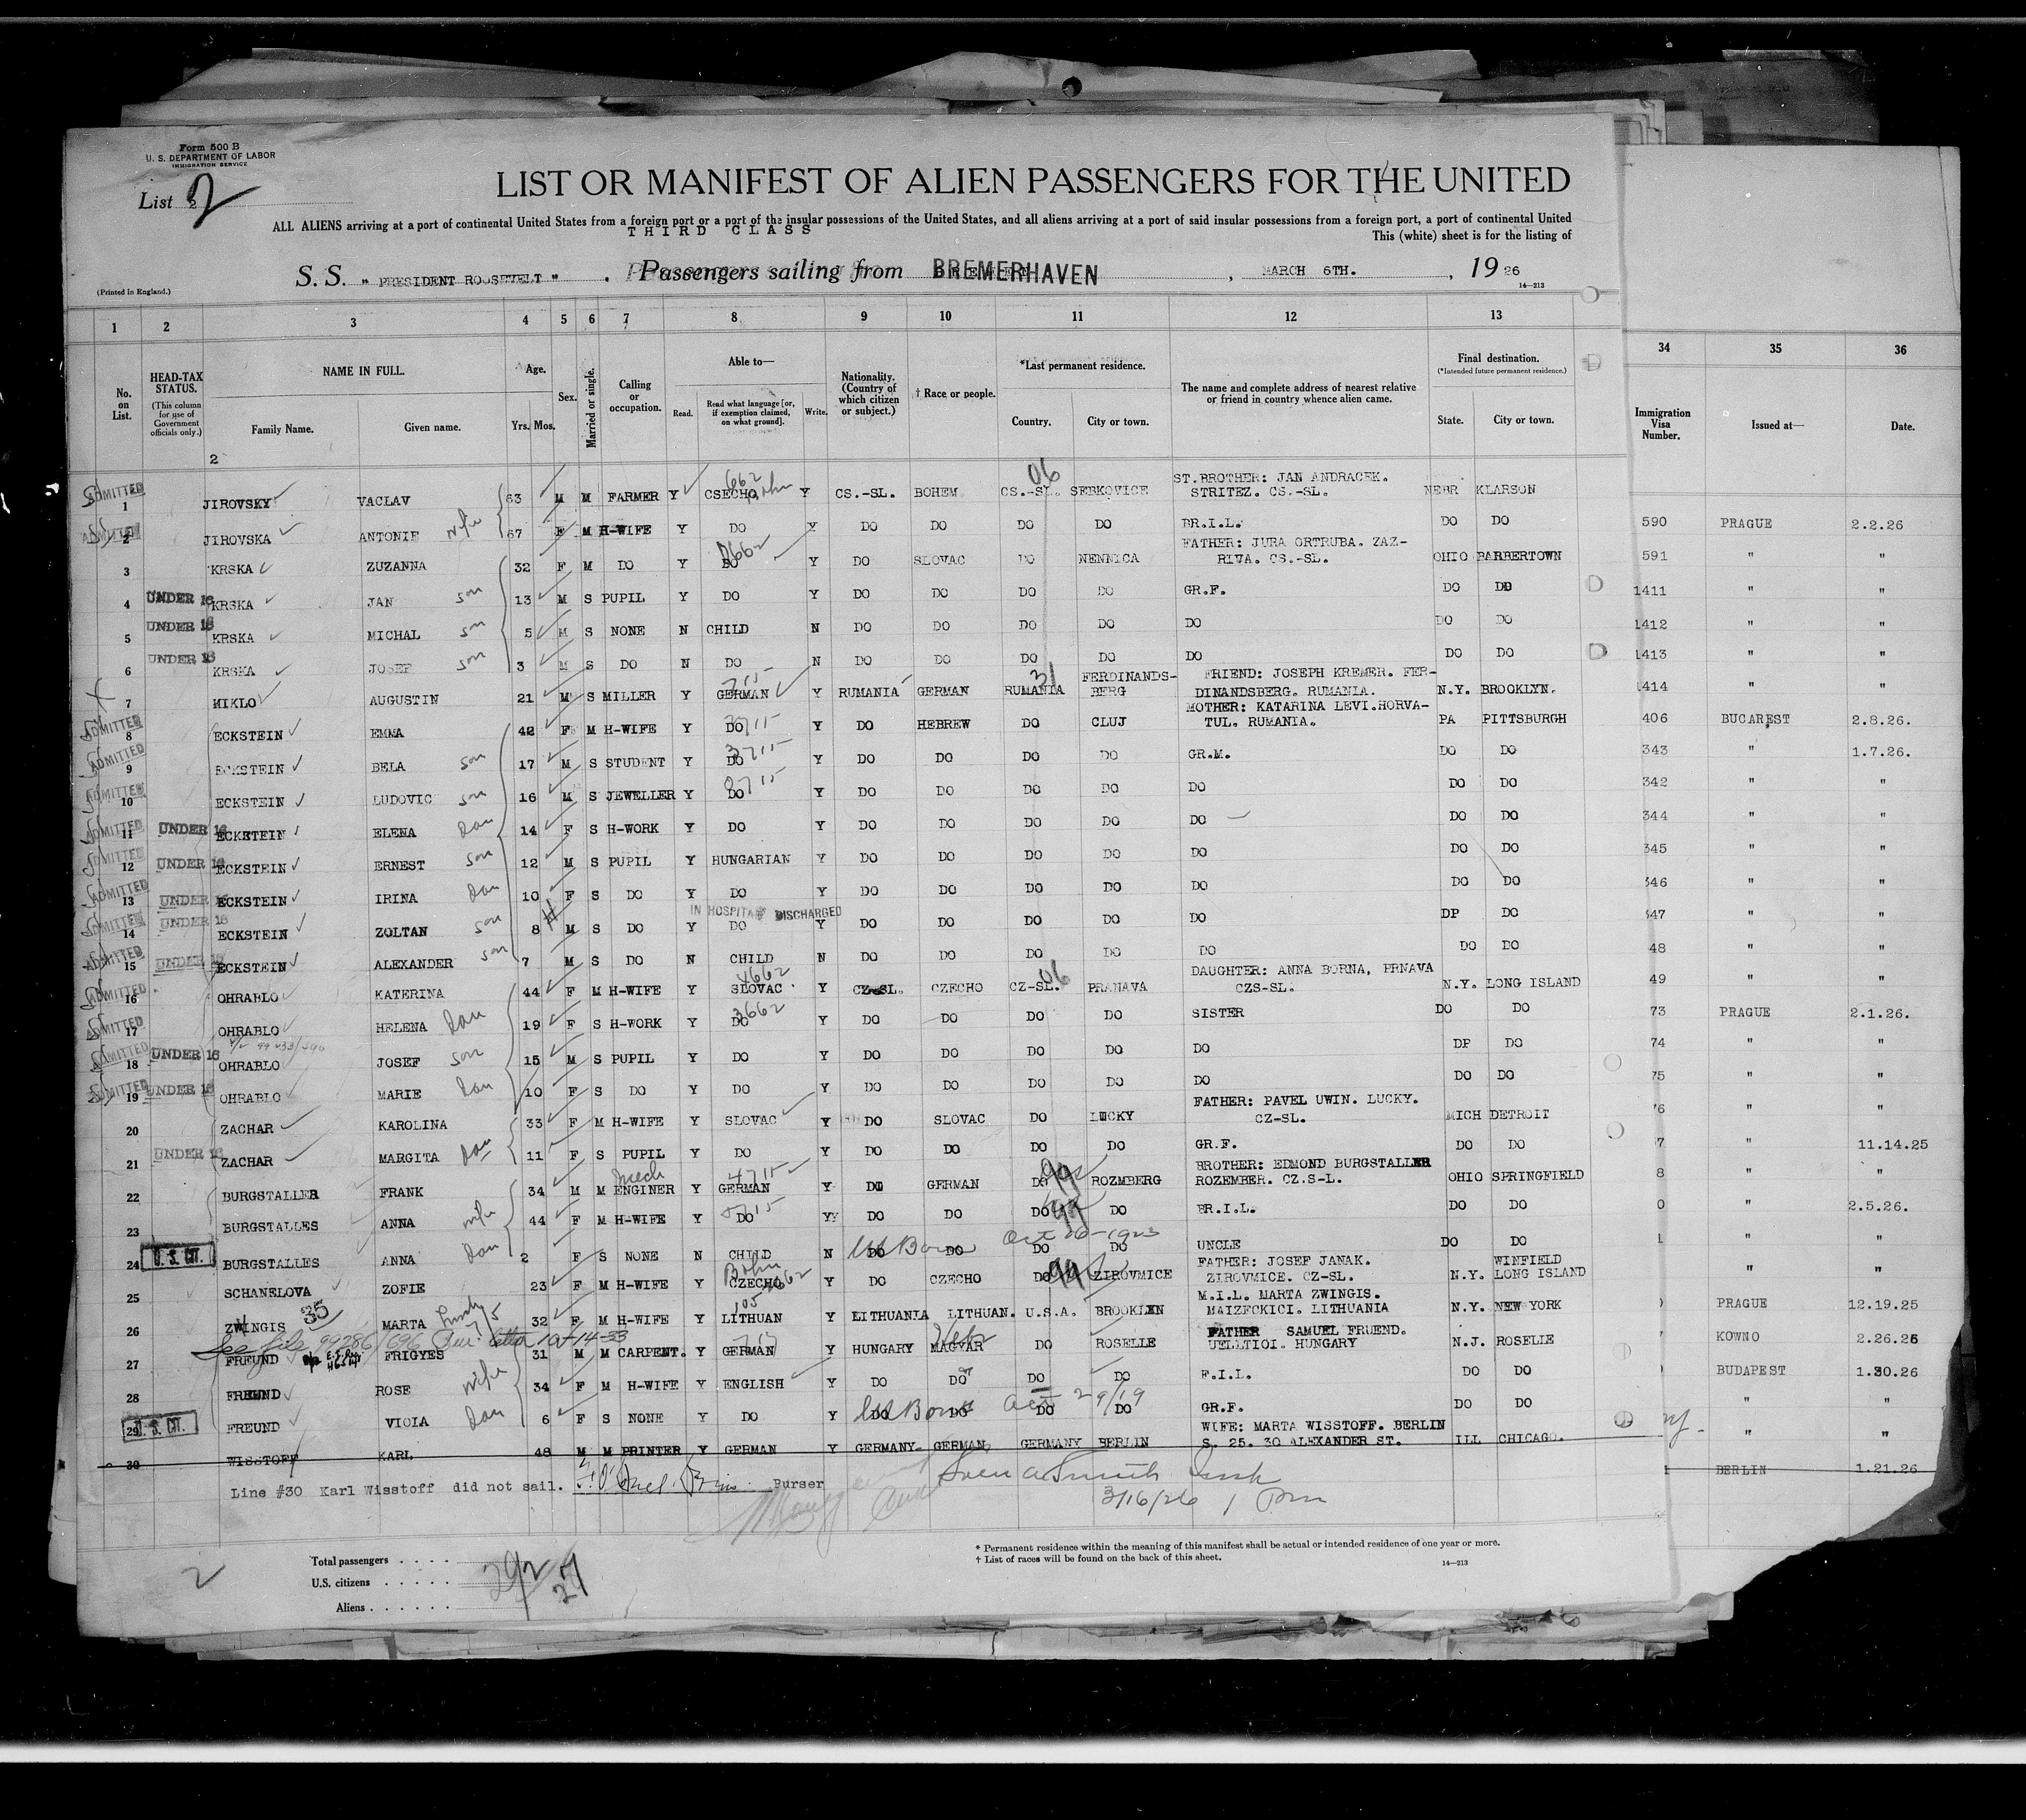 Form 500 B
U. S. DEPARTMENT OF LABOR
IMMIGRATION SERVICE
List 2
LIST OR MANIFEST OF ALIEN PASSENGERS FOR THE UNITED
ALL ALIENS arriving at a port of continental United States from a foreign port or a port of the insular possessions of the United States, and all aliens arriving at a port of said insular possessions from a foreign port, a port of continental United
THIRD CLASS
This (white) sheet is for the listing of
S. S. " PRESIDENT ROOSEVELT " . Passengers sailing from BREMERHAVEN , MARCH 6TH. , 19 26
(Printed in England.)
14—213
1 2 3 4 5 6 7 8 9 10 11 12 13 34 35 36
No. on List.
HEAD-TAX STATUS.
(This column for use of Government officials only.)
NAME IN FULL.
Family Name. Given name.
Age.
Yrs. Mos.
Sex.
Married or single.
Calling or occupation.
Able to—
Read. Read what language [or, if exemption claimed, on what ground]. Write.
Nationality. (Country of which citizen or subject.)
† Race or people.
*Last permanent residence.
Country. City or town.
The name and complete address of nearest relative or friend in country whence alien came.
Final destination.
(*Intended future permanent residence.)
State. City or town.
Immigration Visa Number.
Issued at—
Date.
2
ADMITTED 1 JIROVSKY VACLAV 63 M M FARMER Y CSECHO 662 Y CS.-SL. BOHEM CS.-SL. 06 SEBKOVICE ST.BROTHER: JAN ANDRACEK. STRITEZ. CS.-SL. NEBR KLARSON
ADMITTED 2 JIROVSKA ANTONIE wife 67 F M H-WIFE Y DO Y DO DO DO DO BR.I.L. DO DO 590 PRAGUE 2.2.26
3 KRSKA ZUZANNA 32 F M DO Y DO Y DO SLOVAC DO NENNICA FATHER: JURA ORTRUBA. ZAZ-RIVA. CS.-SL. OHIO BARBERTOWN 591 " "
4 UNDER 16 KRSKA JAN son 13 M S PUPIL Y DO Y DO DO DO DO GR.F. DO DO 1411 " "
5 UNDER 16 KRSKA MICHAL son 5 M S NONE N CHILD N DO DO DO DO DO DO DO 1412 " "
6 UNDER 16 KRSKA JOSEF son 3 M S DO N DO N DO DO DO DO DO DO DO 1413 " "
7 MIKLO AUGUSTIN 21 M S MILLER Y GERMAN 715 Y RUMANIA GERMAN RUMANIA 31 FERDINANDS-BERG FRIEND: JOSEPH KREMER. FER-DINANDSBERG. RUMANIA. N.Y. BROOKLYN. 1414 " "
ADMITTED 8 ECKSTEIN EMMA 42 F M H-WIFE Y DO Y DO HEBREW DO CLUJ MOTHER: KATARINA LEVI.HORVA-TUL. RUMANIA. PA PITTSBURGH 406 BUCAREST 2.8.26.
ADMITTED 9 ECKSTEIN BELA son 17 M S STUDENT Y DO Y DO DO DO DO GR.M. DO DO 343 " 1.7.26.
ADMITTED 10 ECKSTEIN LUDOVIC son 16 M S JEWELLER Y DO Y DO DO DO DO DO DO DO 342 " "
ADMITTED 11 UNDER 16 ECKSTEIN ELENA Dau 14 F S H-WORK Y DO Y DO DO DO DO DO DO DO 344 " "
ADMITTED 12 UNDER 16 ECKSTEIN ERNEST son 12 M S PUPIL Y HUNGARIAN Y DO DO DO DO DO DO DO 345 " "
ADMITTED 13 UNDER 16 ECKSTEIN IRINA Dau 10 F S DO Y DO Y DO DO DO DO DO DO DO 346 " "
IN HOSPITAL DISCHARGED
ADMITTED 14 UNDER 16 ECKSTEIN ZOLTAN son 8 M S DO Y DO Y DO DO DO DO DO DP DO 347 " "
ADMITTED 15 UNDER 16 ECKSTEIN ALEXANDER son 7 M S DO N CHILD N DO DO DO DO DO DO DO 48 " "
ADMITTED 16 OHRABLO KATERINA 44 F M H-WIFE Y SLOVAC Y CZ-SL. CZECHO CZ-SL. 06 PRANAVA DAUGHTER: ANNA BORNA, PRNAVA CZS-SL. N.Y. LONG ISLAND 49 " "
ADMITTED 17 OHRABLO HELENA Dau 19 F S H-WORK Y DO Y DO DO DO DO SISTER DO DO 73 PRAGUE 2.1.26.
ADMITTED 18 UNDER 16 OHRABLO JOSEF son 15 M S PUPIL Y DO Y DO DO DO DO DO DP DO 74 " "
ADMITTED 19 UNDER 16 OHRABLO MARIE Dau 10 F S DO Y DO Y DO DO DO DO DO DO DO 75 " "
20 ZACHAR KAROLINA 33 F M H-WIFE Y SLOVAC Y DO SLOVAC DO LUCKY FATHER: PAVEL UWIN. LUCKY. CZ-SL. MICH DETROIT 76 " "
21 UNDER 16 ZACHAR MARGITA Dau 11 F S PUPIL Y DO Y DO DO DO DO GR.F. DO DO 7 " 11.14.25
22 BURGSTALLER FRANK 34 M M ENGINER Y GERMAN Y DO GERMAN DO 99 ROZMBERG BROTHER: EDMOND BURGSTALLER ROZEMBER. CZ.S-L. OHIO SPRINGFIELD 8 " "
23 BURGSTALLES ANNA wife 44 F M H-WIFE Y DO YY DO DO DO 99 DO BR.I.L. DO DO 0 " 2.5.26.
24 U. S. CIT. BURGSTALLES ANNA Dau 2 F S NONE N CHILD N DO US Born DO Oct 26-1923 DO DO UNCLE DO DO " "
25 SCHANELOVA ZOFIE 23 F M H-WIFE Y CZECHO Bohm Y DO CZECHO DO 99 ZIROVMICE FATHER: JOSEF JANAK. ZIROVMICE. CZ-SL. N.Y. WINFIELD LONG ISLAND " "
26 ZWINGIS 35 MARTA 32 F M H-WIFE Y LITHUAN 105 Y LITHUANIA LITHUAN. U.S.A. BROOKLEN M.I.L. MARTA ZWINGIS. MAIZECKICI. LITHUANIA N.Y. NEW YORK PRAGUE 12.19.25
See file 99286/696 letter 10-14-33
27 FREUND FRIGYES 31 M M CARPENT. Y GERMAN Y HUNGARY MAGVAR Hebr DO ROSELLE FATHER SAMUEL FRUEND. UELLTIOI. HUNGARY N.J. ROSELLE KOWNO 2.26.26
28 FREUND ROSE wife 34 F M H-WIFE Y ENGLISH Y DO DO DO DO F.I.L. DO DO BUDAPEST 1.30.26
29 U. S. CIT. FREUND VIOIA Dau 6 F S NONE Y DO Y DO US Born DO Oct 29/19 DO DO GR.F. DO DO " "
30 WISSTOFF KARL 48 M M PRINTER Y GERMAN Y GERMANY GERMAN GERMANY BERLIN WIFE: MARTA WISSTOFF. BERLIN S. 25. 30 ALEXANDER ST. ILL CHICAGO. " "
BERLIN 1.21.26
Line #30 Karl Wisstoff did not sail. Purser
3/16/26 1 Pm
* Permanent residence within the meaning of this manifest shall be actual or intended residence of one year or more.
† List of races will be found on the back of this sheet.
14—213
2
Total passengers . . . .
U.S. citizens . . . . . 2
Aliens . . . . . . 27